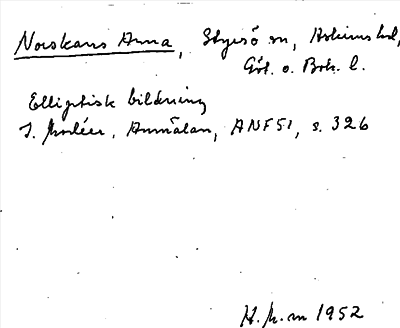 Norskans Anna, Styrsö sn, Askims hd,
Göt. o. Boh. l.
Elliptisk bildning
I. Modéer, Anmälan, ANF 51, s. 326
H. k. m 1952